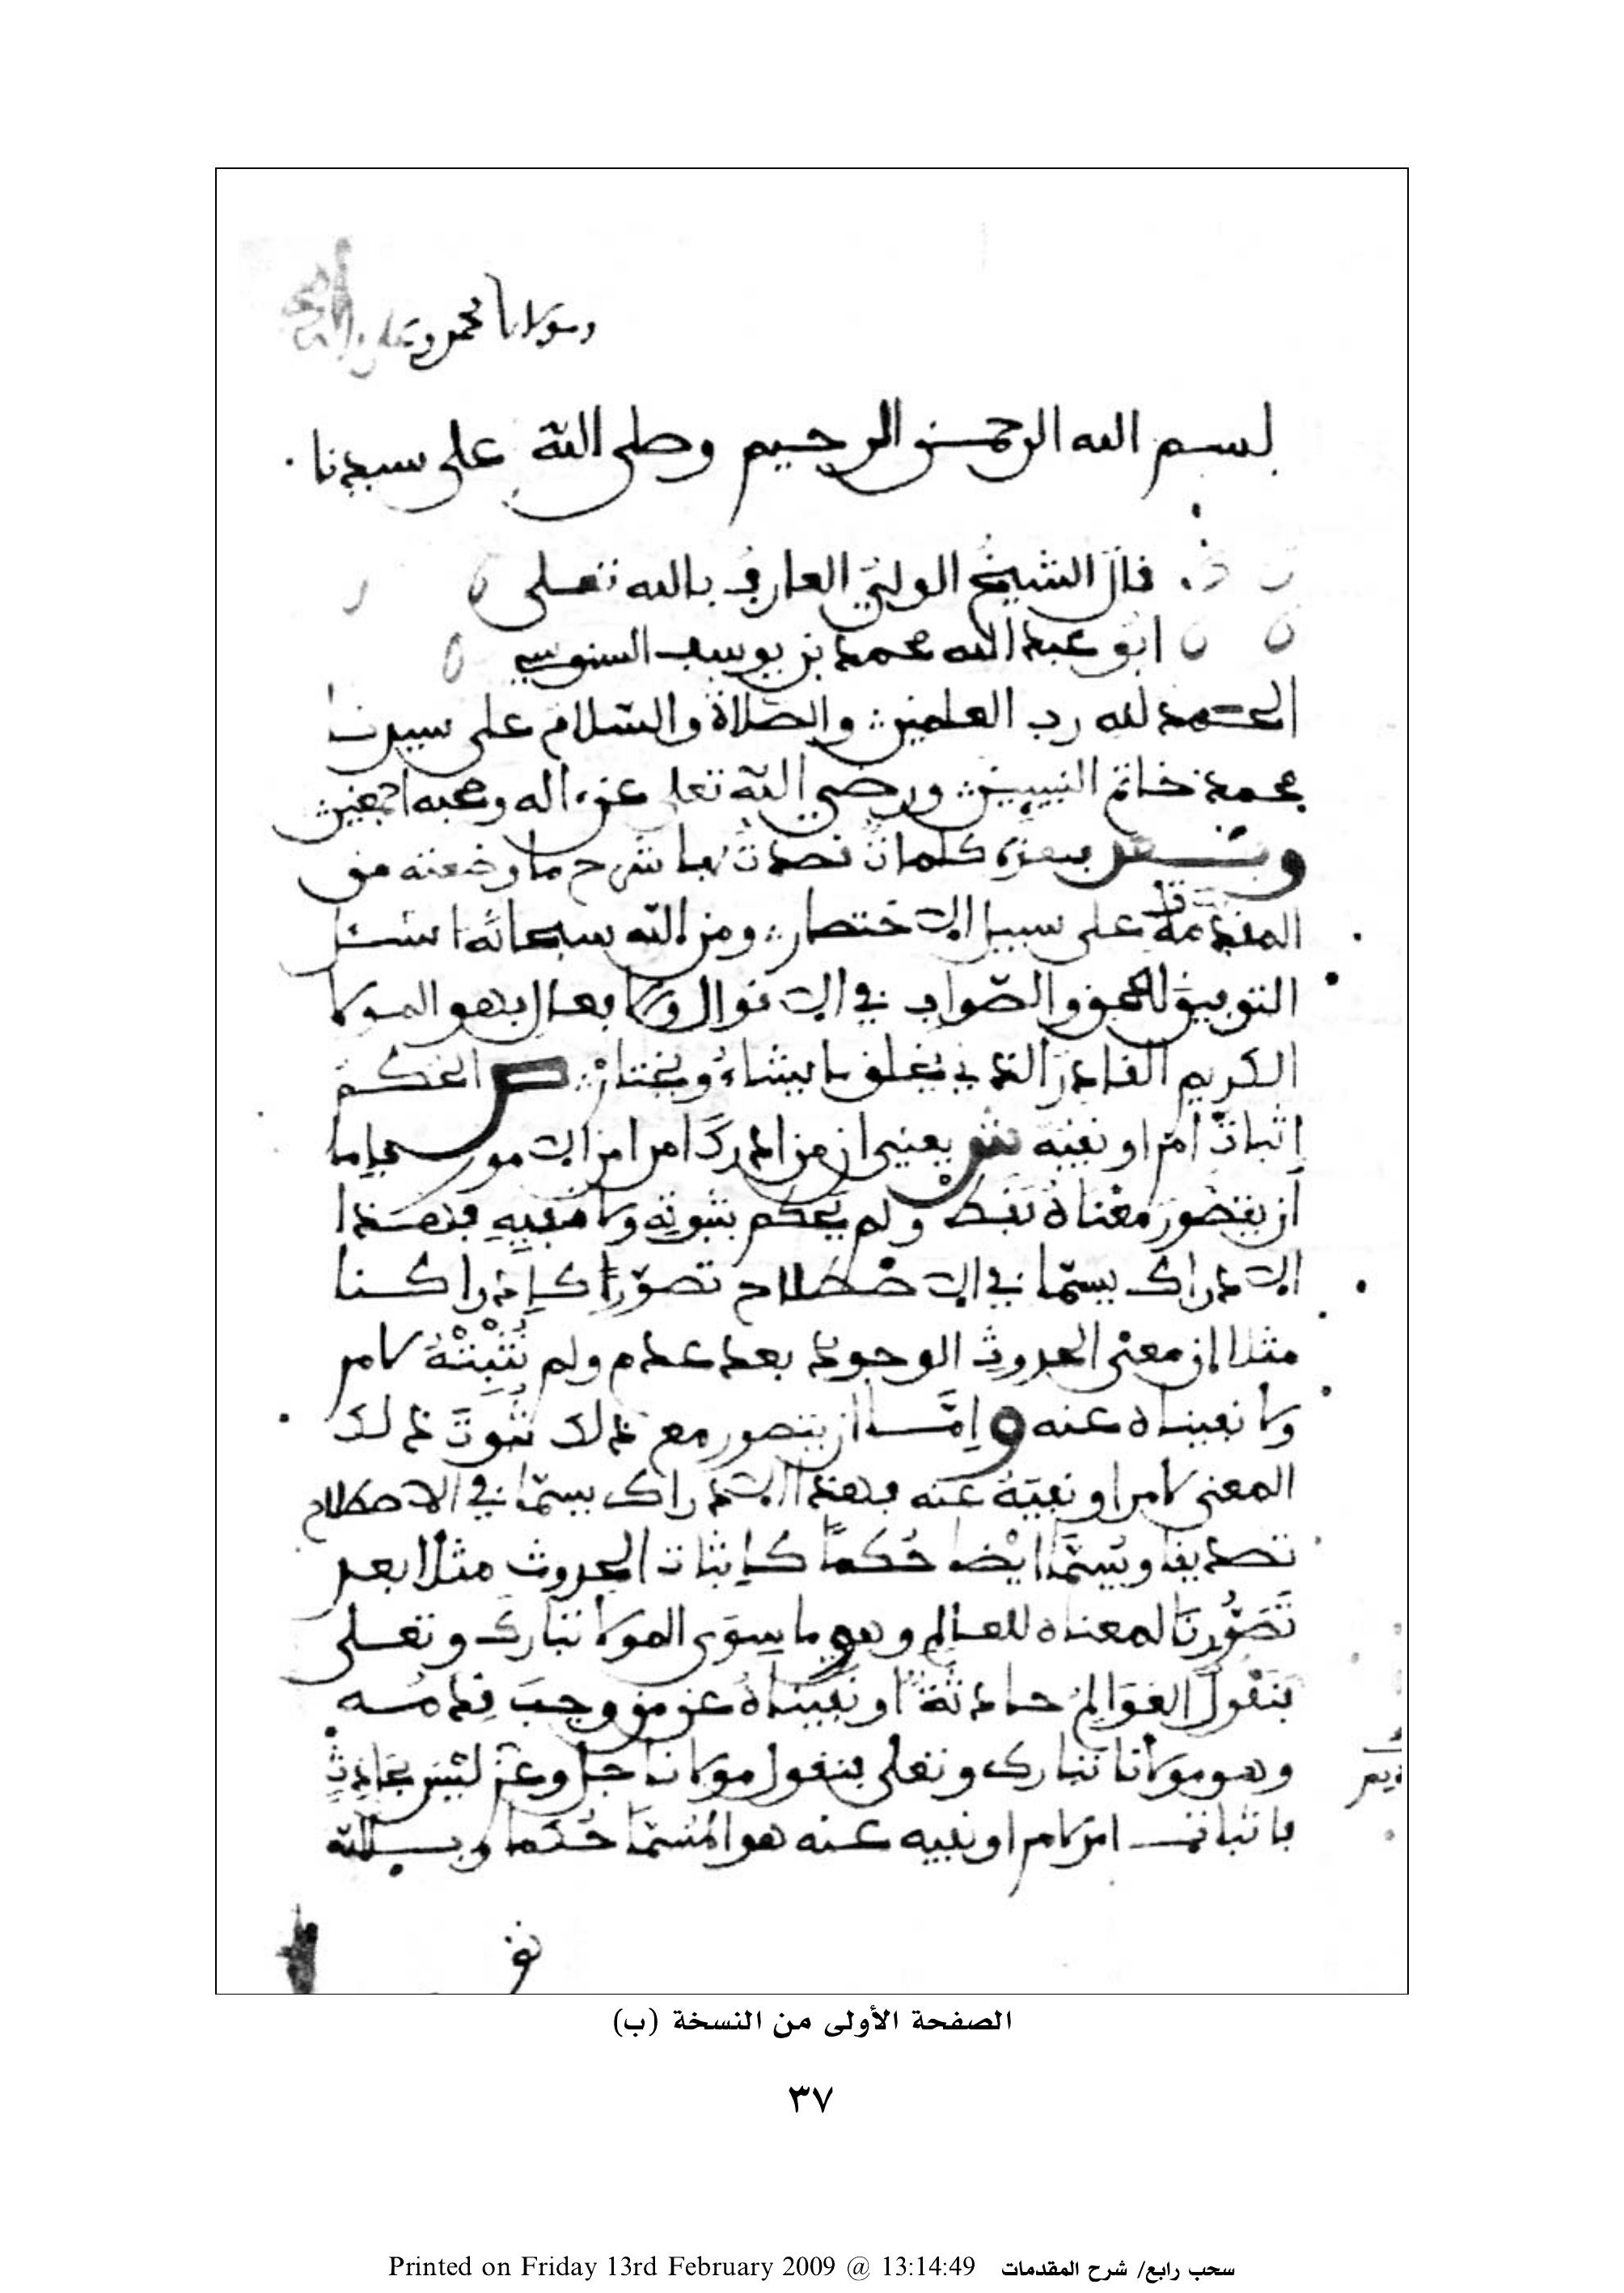 ومولانا محمد وعلى
بسم الله الرحمن الرحيم وصلى الله على سيدنا
قال الشيخ الولي العارف بالله تعلى
ابو عبد الله محمد بن يوسف السنوسي
الحمد لله رب العلمين والصلاة والسلام على سيدنا
محمد خاتم النبيين ورضي الله تعلى عن اله وصحبه اجمعين
وبعد فهذه كلمات قصدت بها شرح ما وضعته من
المقدمات على سبيل الاختصار ومن الله سبحانه اسئل
التوفيق للحق والصواب في الاقوال والافعال فهو المولا
الكريم القادر الذي يخلق ما يشاء ويختار ص الحكم
اثبات امر او نفيه ش يعني ان من ادرك امرا من الامور فاما
ان يتصور معناه فقط ولم يحكم بثبوته ولا نفيه فهذا
الادراك يسما في الاصطلاح تصورا كإدراكنا
مثلا ان معنى الحدوث الوجود بعد عدم ولم نثبته لامر
ولا نفيناه عنه وإما ان يتصور مع ذلك ثبوت ذلك
المعنى لامر او نفيه عنه فهذا الادراك يسما في الاصطلاح
تصديقا ويسما ايضا حكما كإثبات الحدوث مثلا بعد
تصورنا لمعناه للعالم وهو ما سوى المولا تبارك وتعلى
فنقول العوالم حادثة او نفيناه عن من وجب قدمه
وهو مولانا تبارك وتعلى فنقول مولانا جل وعز ليس بحادث
فاثبات امر لامر او نفيه عنه هو المسما حكما وبالله
الصفحة الأولى من النسخة (ب)
٣٧
Printed on Friday 13rd February 2009 @ 13:14:49 سحب رابع/ شرح المقدمات